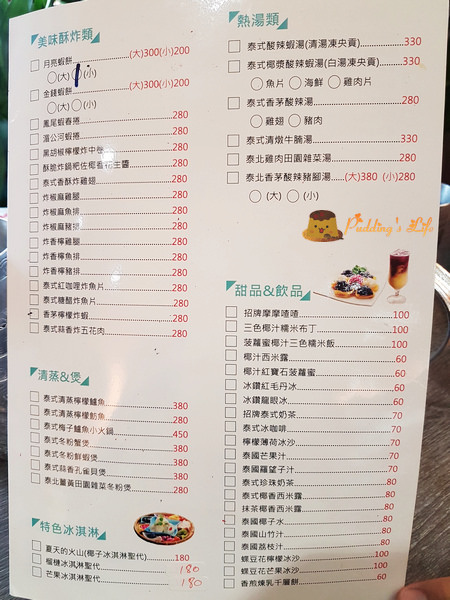 美味酥炸類
月亮蝦餅 (大)300(小)200
(大) (小)
金錢蝦餅 (大)300(小)200
(大) (小)
鳳尾蝦春捲 280
湄公河蝦捲 280
黑胡椒檸檬炸中卷 280
酥脆炸鍋粑佐椰香花生醬 280
泰式香酥炸雞翅 280
炸椒麻雞腿 280
炸椒麻魚排 280
炸椒麻豬排 280
炸香檸雞腿 280
炸香檸魚排 280
炸香檸豬排 280
泰式紅咖哩炸魚片 280
泰式糖醋炸魚片 280
香茅檸檬炸蝦 280
泰式蒜香炸五花肉 280
清蒸&煲
泰式清蒸檸檬鱸魚 380
泰式清蒸檸檬魴魚 280
泰式梅子鱸魚小火鍋 450
泰式冬粉蟹煲 380
泰式冬粉鮮蝦煲 380
泰式蒜香孔雀貝煲 380
泰北薑黃田園雜菜冬粉煲 280
特色冰淇淋
夏天的火山(椰子冰淇淋聖代) 180
榴槤冰淇淋聖代 180
芒果冰淇淋聖代 180
熱湯類
泰式酸辣蝦湯(清湯凍央貢) 330
泰式椰漿酸辣蝦湯(白湯凍央貢) 330
魚片 海鮮 雞肉片
泰式香茅酸辣湯 280
雞翅 豬肉
泰式清燉牛腩湯 330
泰北雞肉田園雜菜湯 280
泰北香茅酸辣豬腳湯 (大)380 (小)280
(大) (小)
Pudding's Life
甜品&飲品
招牌摩摩喳喳 100
三色椰汁糯米布丁 100
菠蘿蜜椰汁三色糯米飯 100
椰汁西米露 60
椰汁紅寶石菠蘿蜜 60
冰鑽紅毛丹冰 60
冰鑽龍眼冰 60
招牌泰式奶茶 70
泰式冰咖啡 70
檸檬薄荷冰沙 70
泰國芒果汁 80
泰國羅望子汁 80
泰式珍珠奶茶 80
泰式椰香西米露 80
抹茶椰香西米露 80
泰國椰子水 80
泰國山竹汁 80
泰國荔枝汁 80
蝶豆花檸檬冰沙 100
蝶豆花芒果冰沙 100
香煎煉乳千層餅 60